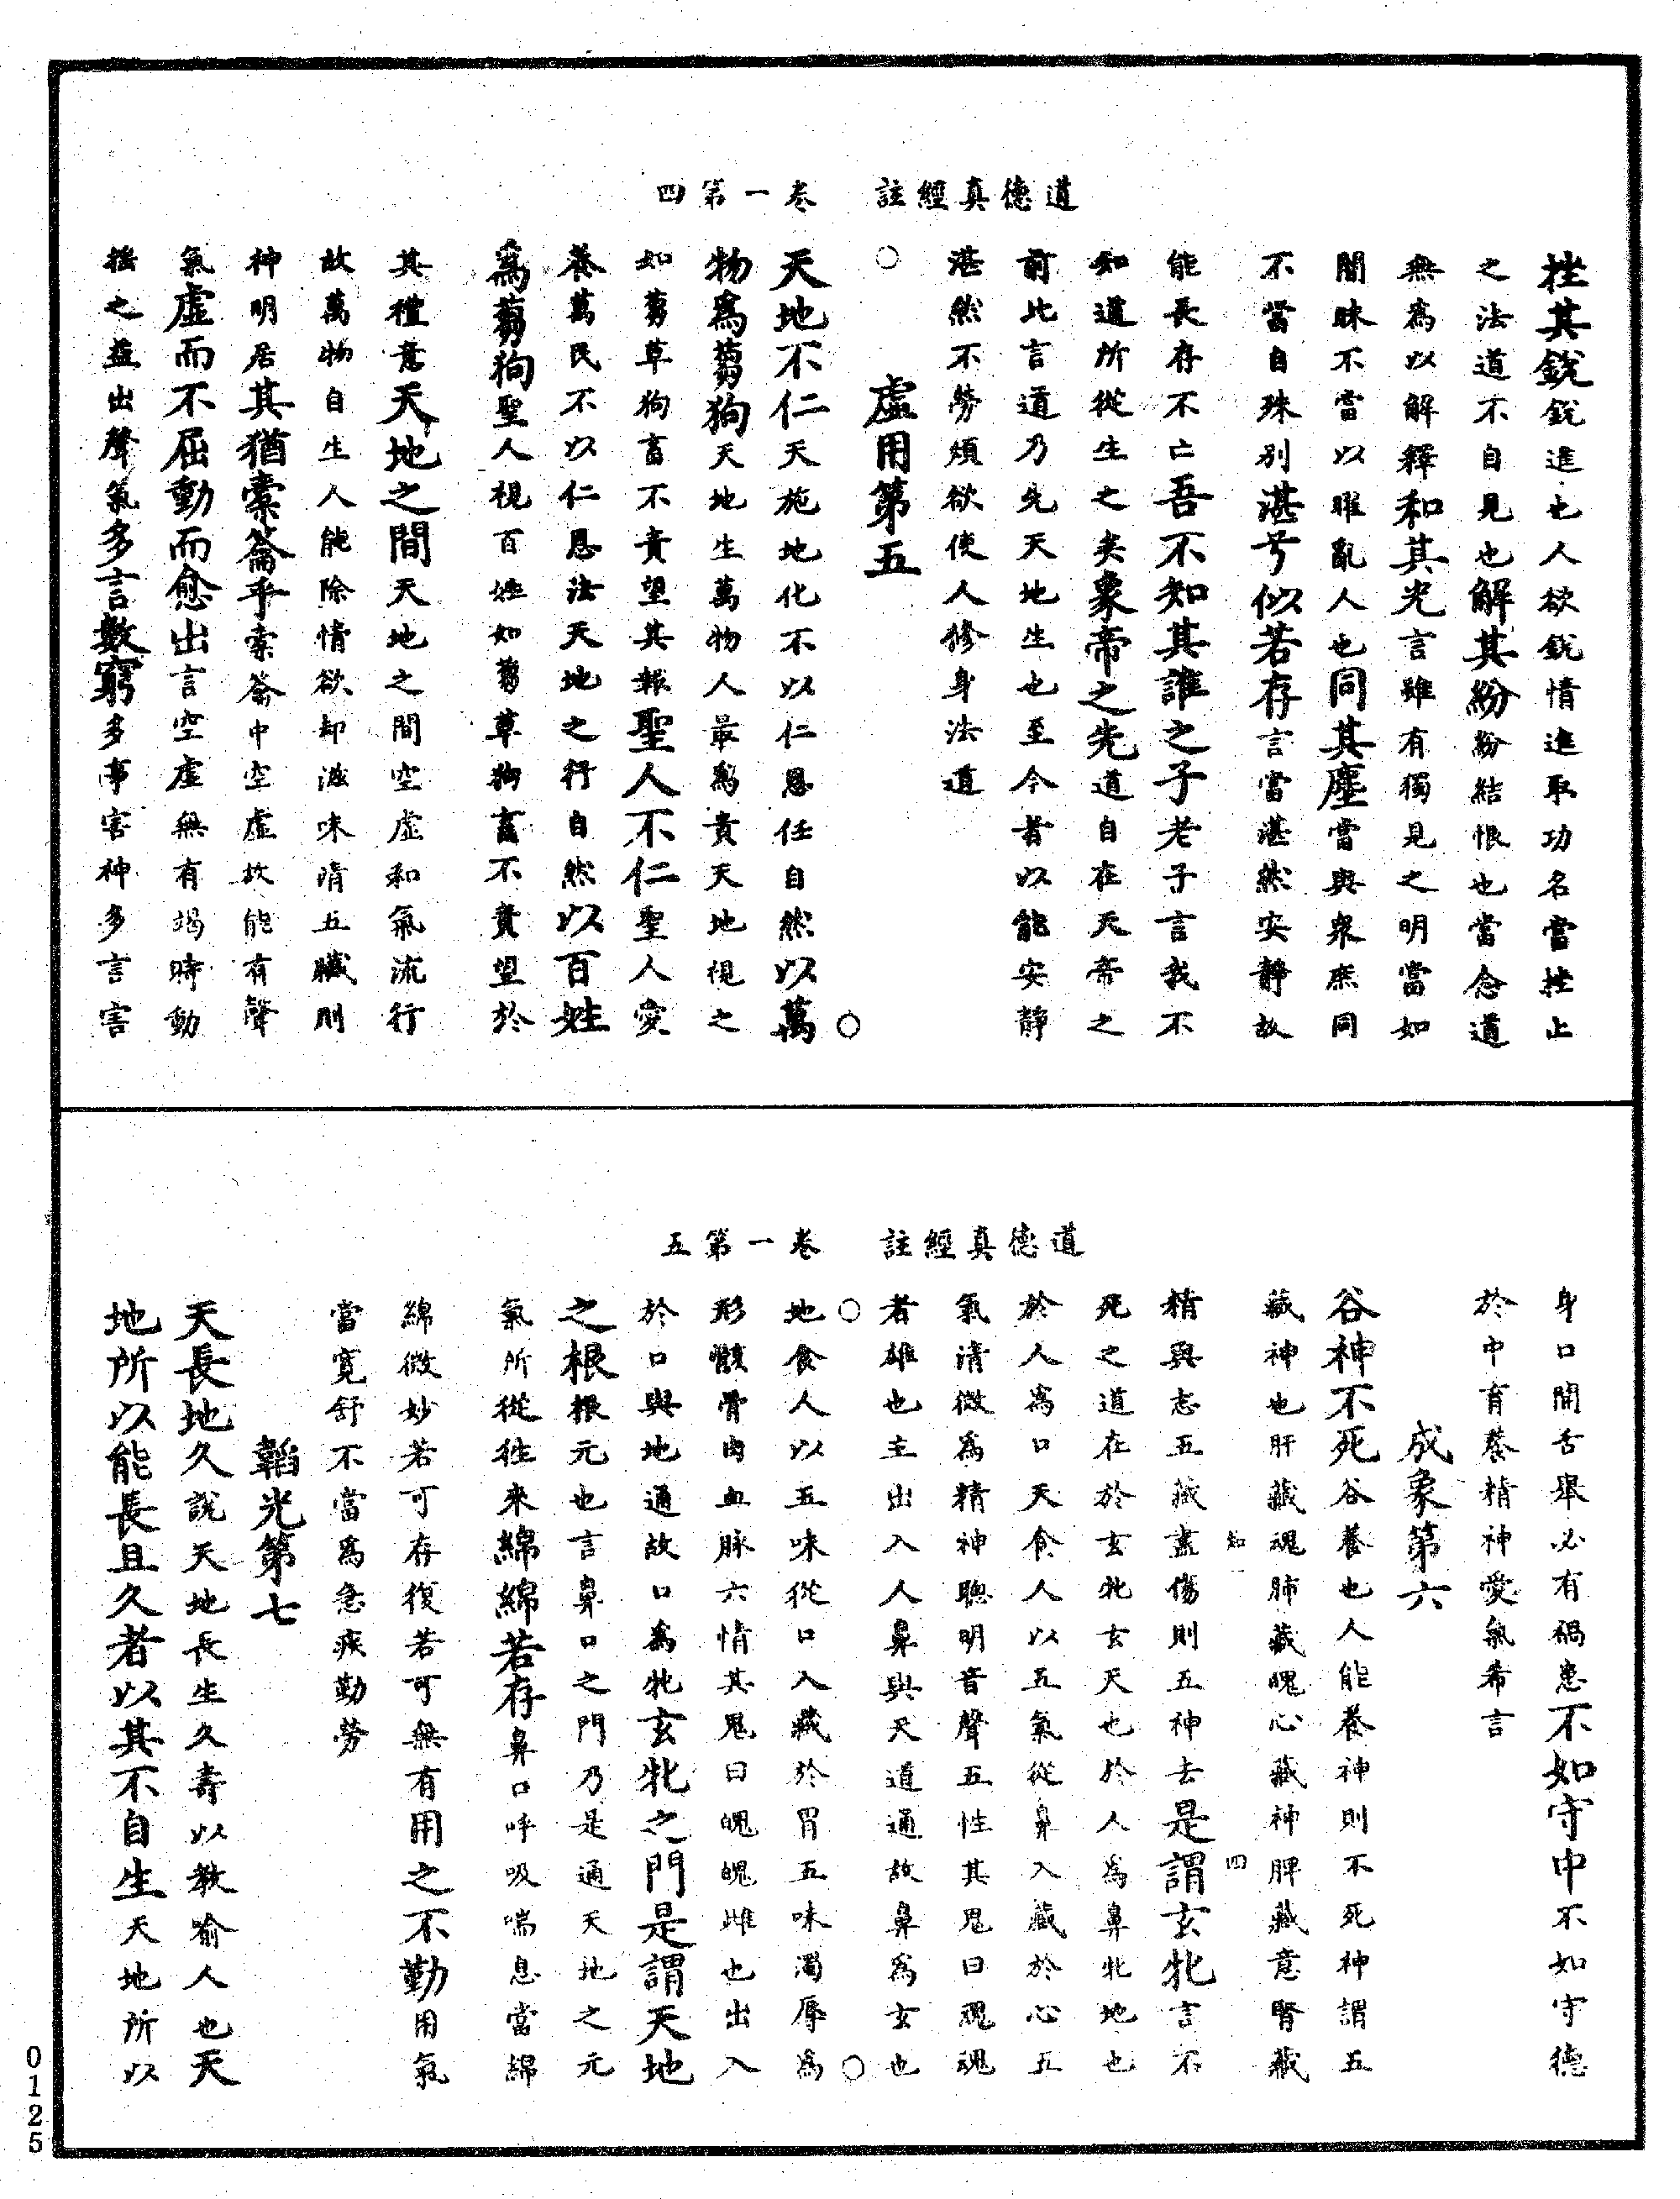 道德真經註　卷一第四
挫其銳銳進也人欲銳情進取功名當挫止
之法道不自見也解其紛紛結恨也當念道
無爲以解釋和其光言雖有獨見之明當如
闇昧不當以曜亂人也同其塵當與衆庶同
不當自殊別湛兮似若存言當湛然安靜故
能長存不亡吾不知其誰之子老子言我不
知道所從生之矣象帝之先道自在天帝之
前此言道乃先天地生也至今者以能安靜
湛然不勞煩欲使人修身法道
○
虛用第五
○
天地不仁天施地化不以仁恩任自然以萬
物爲芻狗天地生萬物人最爲貴天地視之
如芻草狗畜不責望其報聖人不仁聖人愛
養萬民不以仁恩法天地之行自然以百姓
爲芻狗聖人視百姓如芻草狗畜不責望於
其禮意天地之間天地之間空虛和氣流行
故萬物自生人能除情欲却滋味清五臟則
神明居其猶橐籥乎橐籥中空虛故能有聲
氣虛而不屈動而愈出言空虛無有竭時動
搖之益出聲氣多言數窮多事害神多言害
道德真經註　卷一第五
身口開舌舉必有禍患不如守中不如守德
於中育養精神愛氣希言
成象第六
谷神不死谷養也人能養神則不死神謂五
藏神也肝藏魂肺藏魄心藏神脾藏意腎藏
知　四
精與志五藏盡傷則五神去是謂玄牝言不
死之道在於玄牝玄天也於人爲鼻牝地也
於人爲口天食人以五氣從鼻入藏於心五
氣清微爲精神聰明音聲五性其鬼曰魂魂
者雄也主出入人鼻與天道通故鼻爲玄也
○　○
地食人以五味從口入藏於胃五味濁辱爲
形骸骨肉血脉六情其鬼曰魄魄雌也出入
於口與地通故口爲牝玄牝之門是謂天地
之根根元也言鼻口之門乃是通天地之元
氣所從往來綿綿若存鼻口呼吸喘息當綿
綿微妙若可存復若可無有用之不勤用氣
當寬舒不當爲急疾勤勞
韜光第七
天長地久說天地長生久壽以教喻人也天
地所以能長且久者以其不自生天地所以
0125